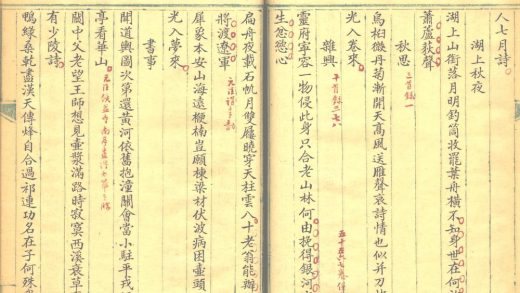 人七月詩
湖上秋夜
湖上山銜落月明釣筒收罷葉舟橫不知身世在何
蕭蘆荻聲
秋思 三首錄一
烏桕微丹菊漸開天高風送雁聲哀詩情也似并刀
光入卷來
雜興
靈府寧容一物侵此身只合老山林何由挽得銀河
生忿慾心
扁舟夜載石帆月雙屨曉穿天柱雲八十老翁能辦
將渡遼軍
犀象本安山海遠楩楠豈願棟梁材伏波病困壺頭
光入夢來
書事
聞道輿圖次第還黃河依舊抱潼關會當小駐平戎
亭看華山
關中父老望王師想見壺漿滿路時寂寞西溪衰草
有少陵詩
鴨綠桑乾盡漢天傳烽自合過祁連功名在子何殊